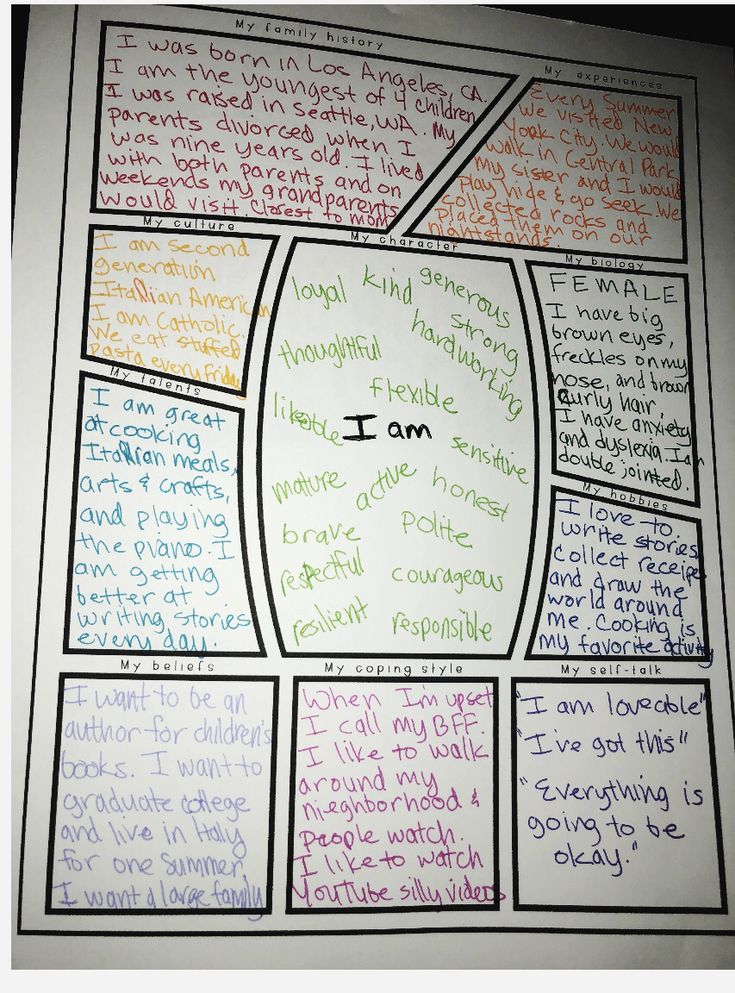 My family history
I was born in Los Angeles, CA.
I am the youngest of 4 children
I was raised in Seattle, WA. My
parents divorced when I
was nine years old. I lived
with both parents and on
weekends my grandparents
would visit. Closest to mom
My experiences
Every Summer
we visited New
York City. We would
walk in Central Park
my sister and I would
play hide & go seek. We
collected rocks and
placed them on our
nightstands.
My culture
I am second
generation
Italian American
I am Catholic.
We eat stuffed
pasta every Friday
My character
loyal kind generous
strong
hardworking
thoughtful
flexible
likeable
I am
sensitive
mature active honest
brave polite
respectful courageous
resilient responsible
My biology
FEMALE
I have big
brown eyes,
freckles on my
nose, and brown
curly hair.
I have anxiety
and dyslexia I am
double jointed.
My talents
I am great
at cooking
Italian meals,
arts & crafts,
and playing
the piano. I
am getting
better at
writing stories
every day.
My hobbies
I love to
write stories
collect receipes
and draw the
world around
me. Cooking is
my favorite activity
My beliefs
I want to be an
author for children's
books. I want to
graduate college
and live in Italy
for one summer.
I want a large family
My coping style
When I'm upset
I call my BFF.
I like to walk
around my
nieghborhood &
people watch.
I like to watch
YouTube silly videos
My self-talk
"I am loveable"
"I've got this"
"Everything is
going to be
okay."